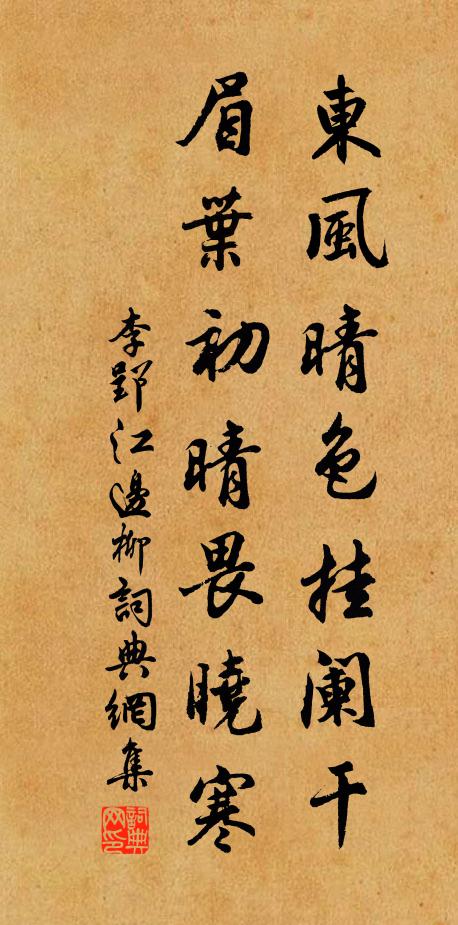 東風晴色挂阑干
眉葉初晴畏曉寒
李郢江邊柳詞典網集
詞典網印